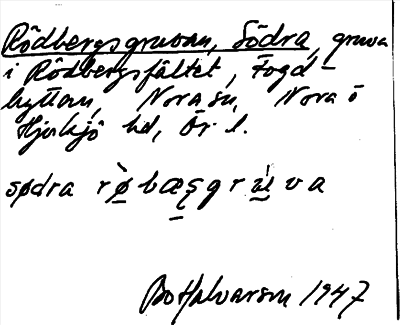 Rödbergsgruvan, Södra, gruva
i Rödbergsfältet, Fogd-
hyttan, Nora sn, Nora o
Hjulsjö hd, Ör. l.
södra rø̀bæșgrúva
Bo Halvarson 1947